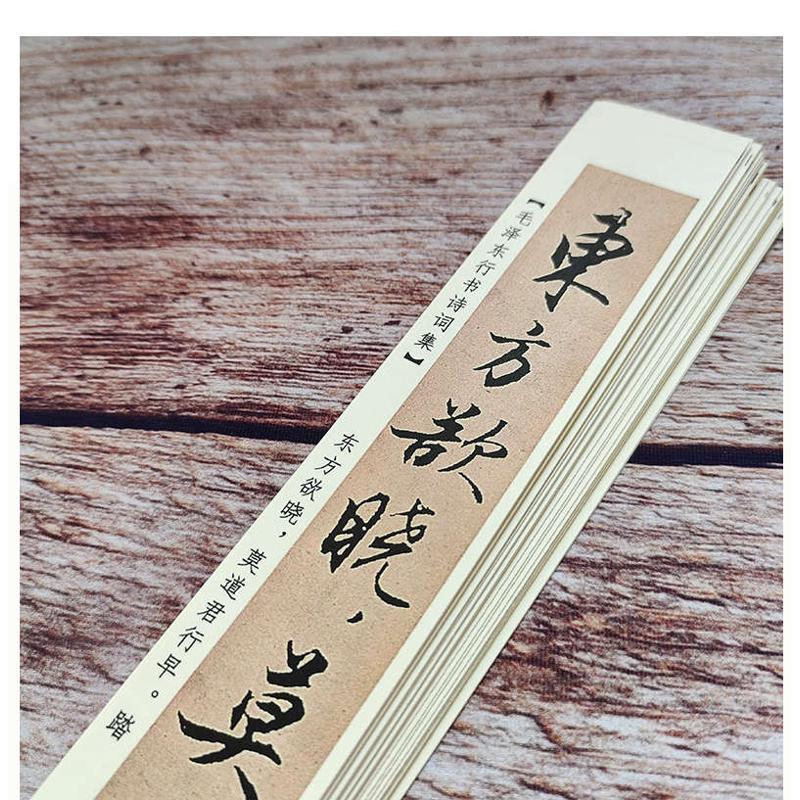 【毛泽东行书诗词集】
东方欲晓，莫道君行早。踏
東方欲曉，莫